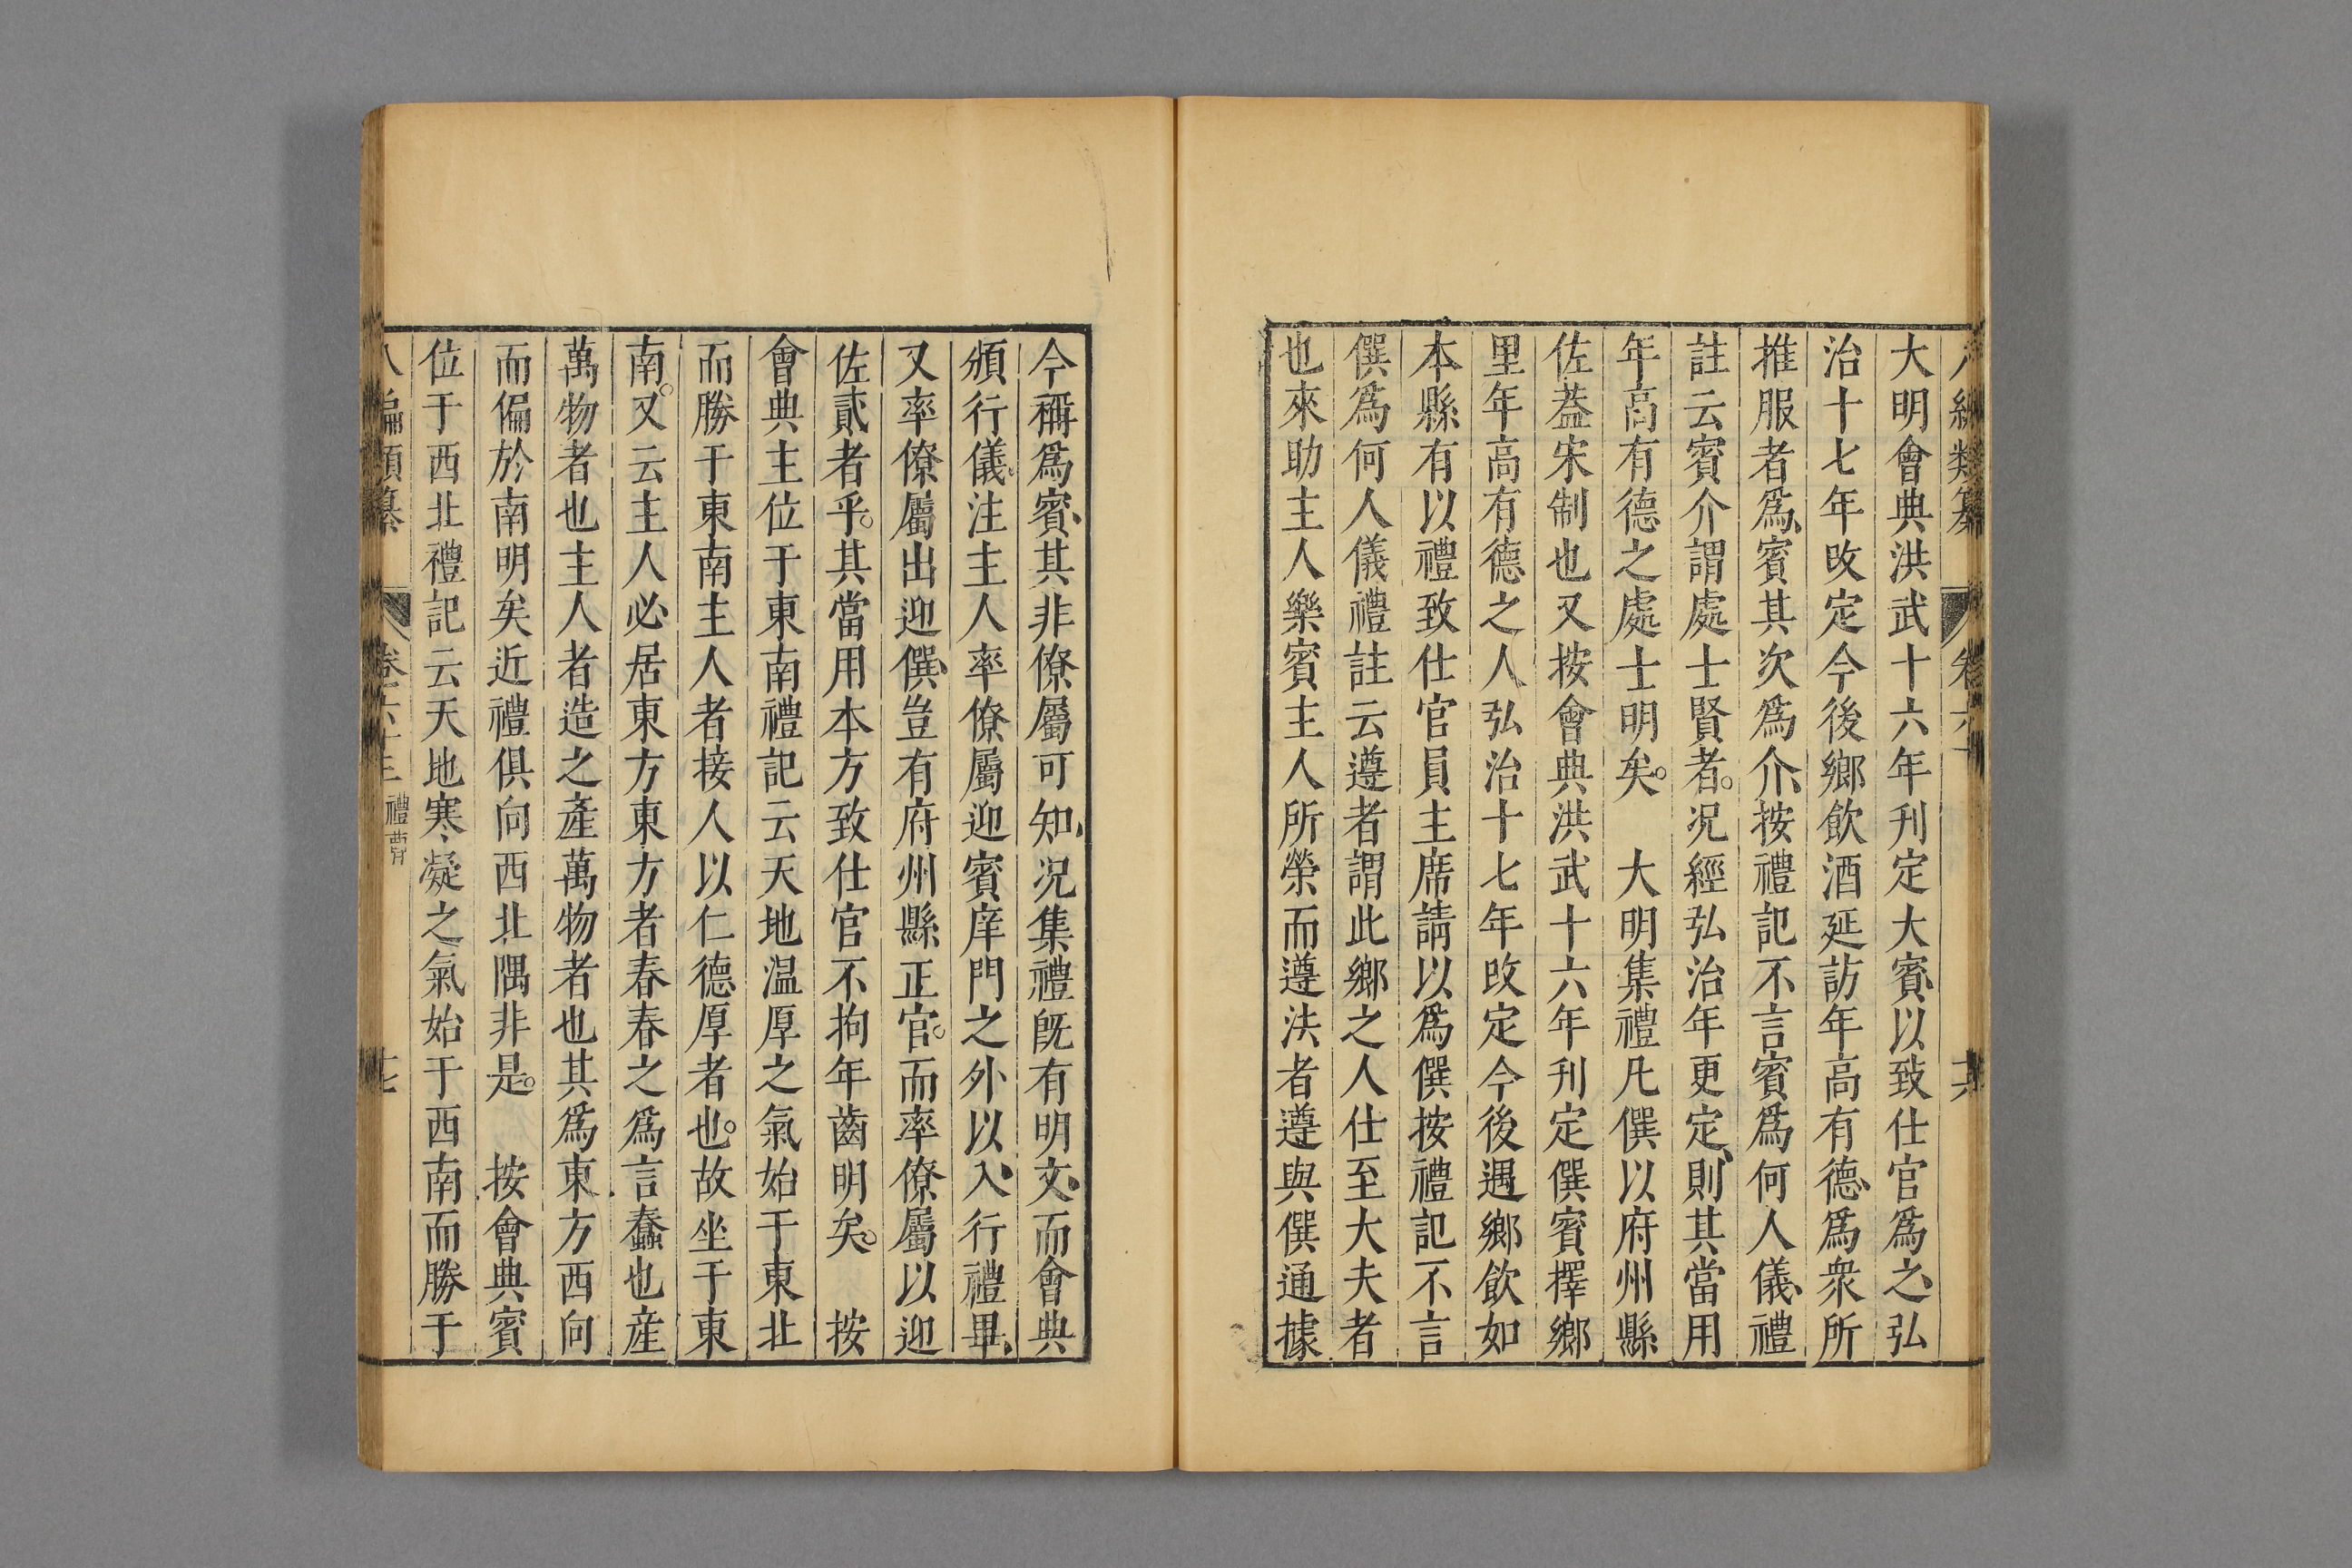 大明會典洪武十六年刊定大賓以致仕官爲之弘
治十七年改定今後鄉飲酒延訪年高有德爲衆所
推服者爲賓其次爲介按禮記不言賓爲何人儀禮
註云賓介謂處士賢者況經弘治年更定則其當用
年高有德之處士明矣　大明集禮凡僎以府州縣
佐葢宋制也又按會典洪武十六年刊定僎賓擇鄉
里年高有德之人弘治十七年改定今後遇鄉飲如
本縣有以禮致仕官員主席請以爲僎按禮記不言
僎爲何人儀禮註云遵者謂此鄉之人仕至大夫者
也來助主人樂賓主人所榮而遵法者遵與僎通據
今稱爲賓其非僚屬可知況集禮旣有明文而會典
頒行儀注主人率僚屬迎賓庠門之外以入行禮畢
又率僚屬出迎僎豈有府州縣正官而率僚屬以迎
佐貳者乎其當用本方致仕官不拘年齒明矣　按
會典主位于東南禮記云天地温厚之氣始于東北
而勝于東南主人者接人以仁德厚者也故坐于東
南又云主人必居東方東方者春春之爲言蠢也産
萬物者也主人者造之產萬物者也其爲東方西向
而偏於南明矣近禮俱向西北隅非是　按會典賓
位于西北禮記云天地寒凝之氣始于西南而勝于
八編類纂　卷六十三　禮曹　十七